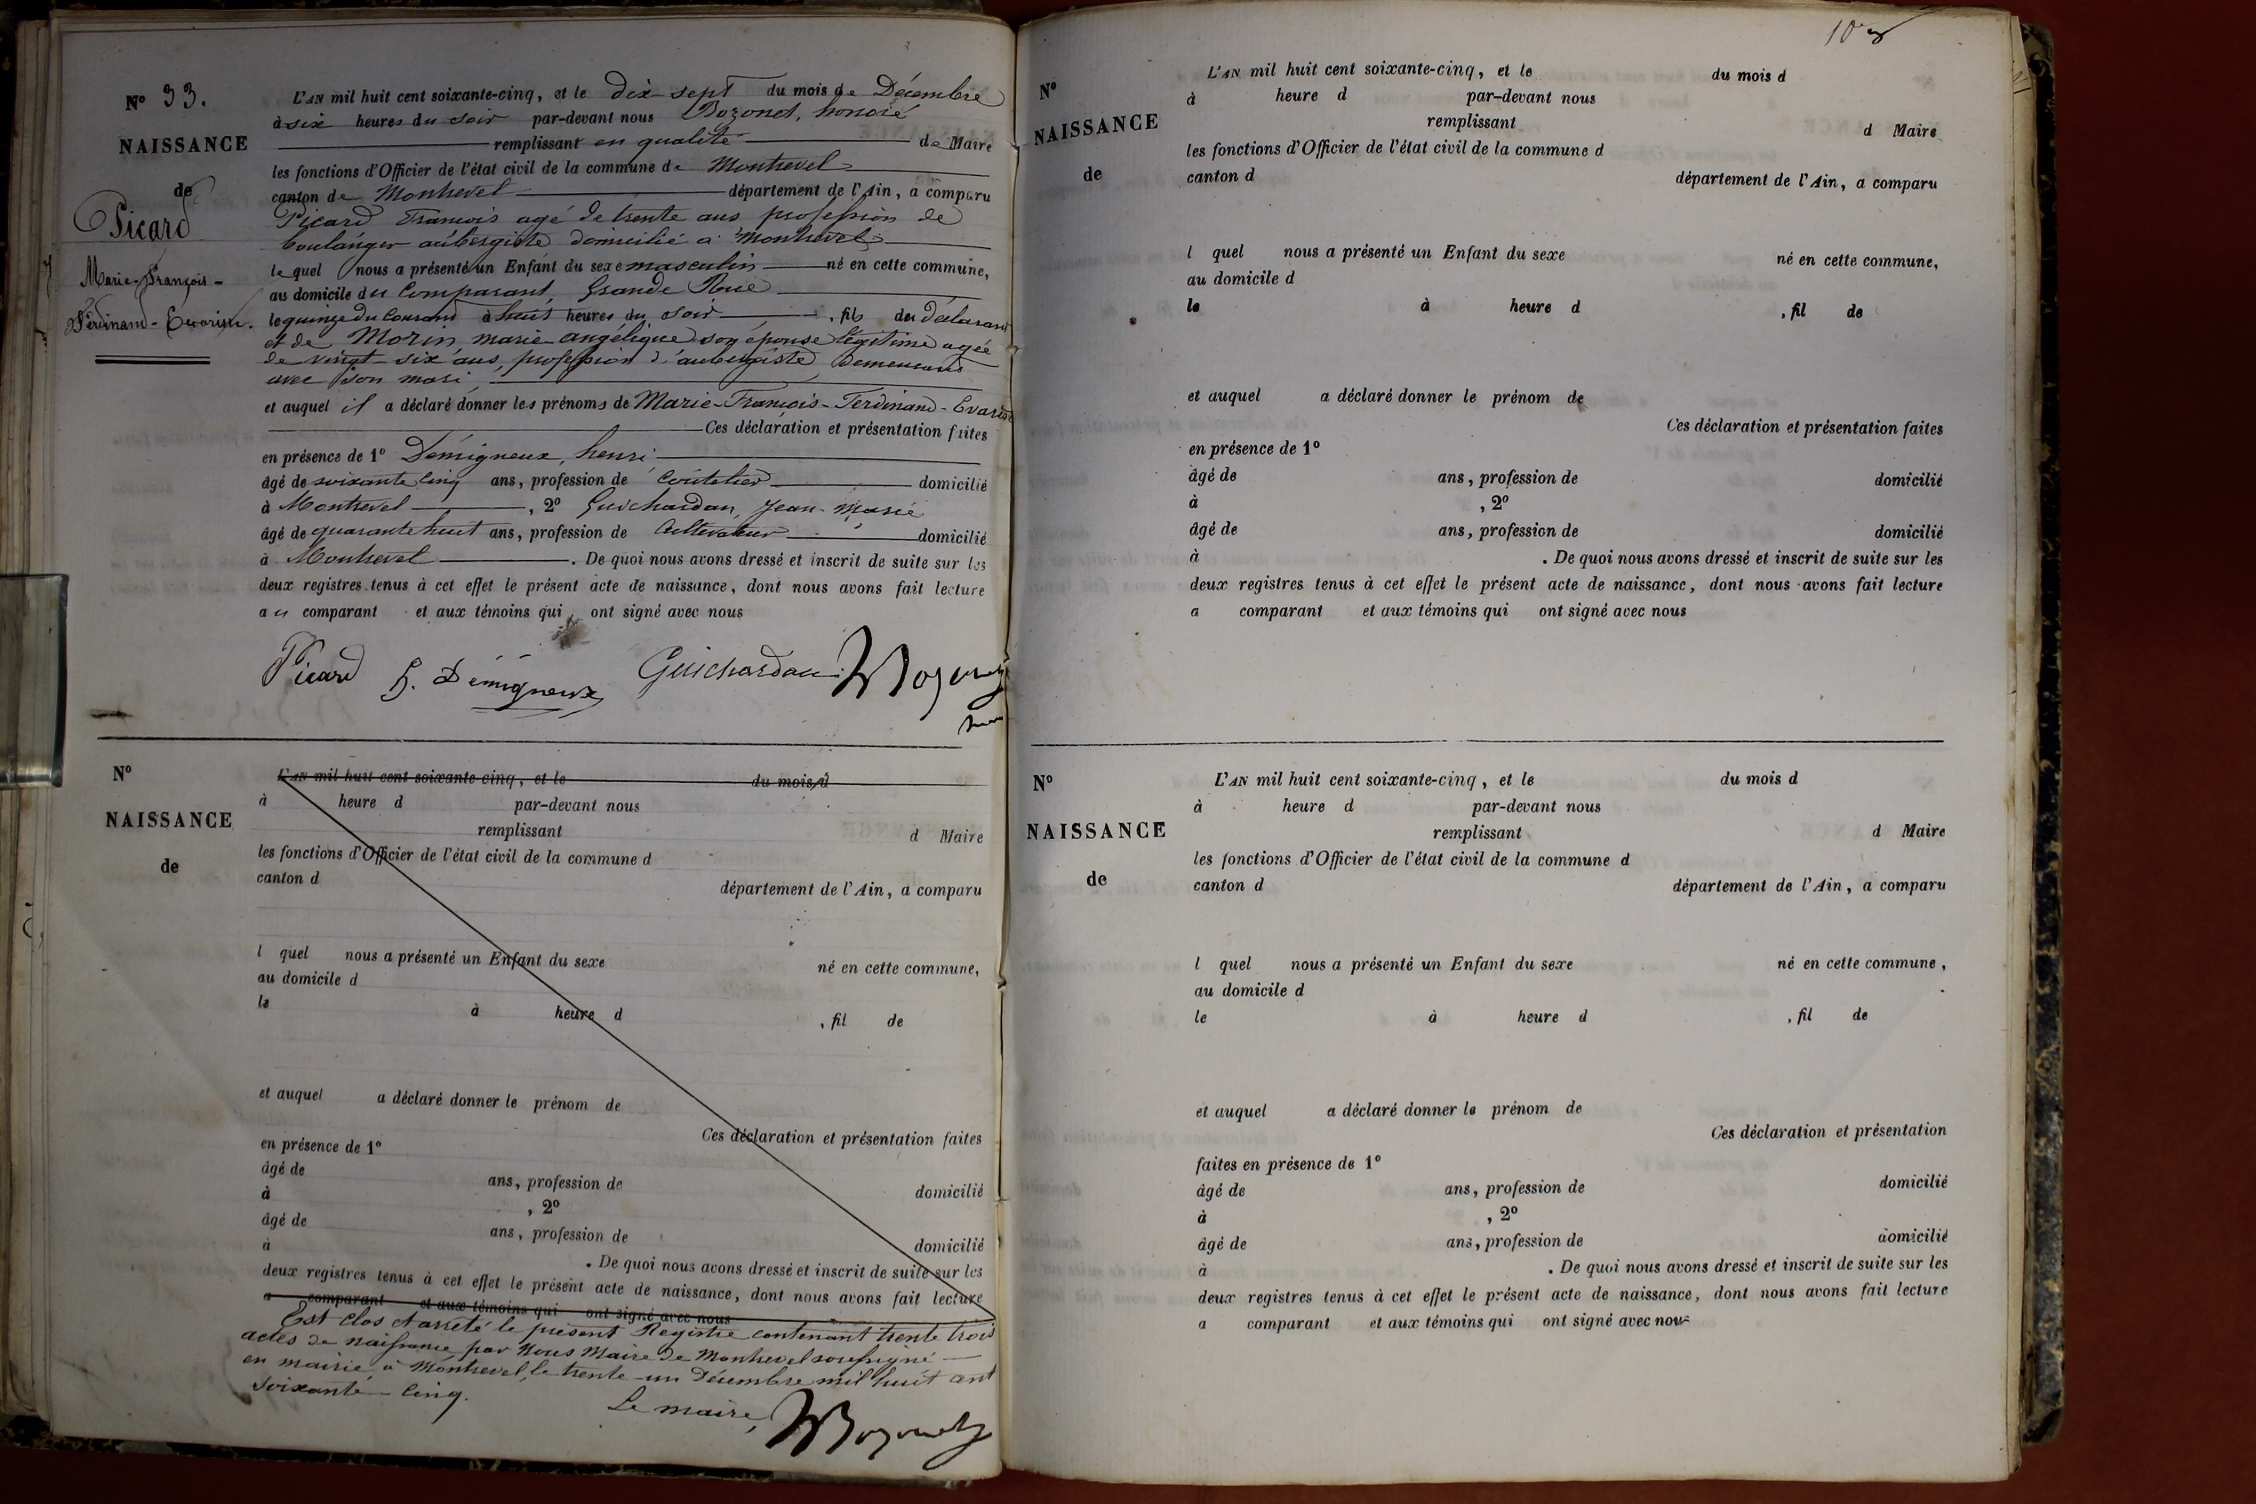 N° 33.
NAISSANCE
de
Picard
Marie-François-
Ferdinand-Evariste.
L'AN mil huit cent soixante-cinq, et le dix sept du mois de Décembre
à six heures du soir par-devant nous Bozonet, honoré
remplissant en qualité de Maire
les fonctions d'Officier de l'état civil de la commune de Montrevel
canton de Montrevel département de l'Ain, a comparu
Picard François agé de trente ans profession de
boulanger aubergiste domicilié à Montrevel
lequel nous a présenté un Enfant du sexe masculin né en cette commune,
au domicile du Comparant, Grande Rue
le quinze du Courant à huit heures du soir, fils du déclarant
et de Morin marie angélique son épouse légitime agée
de vingt-six ans, profession d'aubergiste, Demeurant
avec son mari
et auquel il a déclaré donner les prénoms de Marie-François-Ferdinand-Evariste
Ces déclaration et présentation faites
en présence de 1° Démigneux, henri
âgé de soixante cinq ans, profession de Coutelier domicilié
à Montrevel, 2° Guichardan, Jean-Marie
âgé de quarante huit ans, profession de Cultivateur domicilié
à Montrevel. De quoi nous avons dressé et inscrit de suite sur les
deux registres tenus à cet effet le présent acte de naissance, dont nous avons fait lecture
au comparant et aux témoins qui ont signé avec nous
Picard H. Démigneux Guichardan Bozonet
N°
NAISSANCE
de
L'AN mil huit cent soixante-cinq, et le du mois d
à heure d par-devant nous
remplissant d Maire
les fonctions d'Officier de l'état civil de la commune d
canton d département de l'Ain, a comparu
l quel nous a présenté un Enfant du sexe né en cette commune,
au domicile d
le à heure d , fil de
et auquel a déclaré donner le prénom de
Ces déclaration et présentation faites
en présence de 1°
âgé de ans, profession de domicilié
à , 2°
âgé de ans, profession de domicilié
à . De quoi nous avons dressé et inscrit de suite sur les
deux registres tenus à cet effet le présent acte de naissance, dont nous avons fait lecture
a comparant et aux témoins qui ont signé avec nous
Est clos et arrêté le présent Registre contenant trente trois
actes de naissance par Nous Maire de Montrevel soussigné
en mairie à Montrevel, le trente-un Décembre mil huit cent
soixante-cinq.
Le maire, Bozonet
N°
NAISSANCE
de
L'AN mil huit cent soixante-cinq, et le du mois d
à heure d par-devant nous
remplissant d Maire
les fonctions d'Officier de l'état civil de la commune d
canton d département de l'Ain, a comparu
l quel nous a présenté un Enfant du sexe né en cette commune,
au domicile d
le à heure d , fil de
et auquel a déclaré donner le prénom de
Ces déclaration et présentation faites
en présence de 1°
âgé de ans, profession de domicilié
à , 2°
âgé de ans, profession de domicilié
à . De quoi nous avons dressé et inscrit de suite sur les
deux registres tenus à cet effet le présent acte de naissance, dont nous avons fait lecture
a comparant et aux témoins qui ont signé avec nous
N°
NAISSANCE
de
L'AN mil huit cent soixante-cinq, et le du mois d
à heure d par-devant nous
remplissant d Maire
les fonctions d'Officier de l'état civil de la commune d
canton d département de l'Ain, a comparu
l quel nous a présenté un Enfant du sexe né en cette commune,
au domicile d
le à heure d , fil de
et auquel a déclaré donner le prénom de
Ces déclaration et présentation
faites en présence de 1°
âgé de ans, profession de domicilié
à , 2°
âgé de ans, profession de domicilié
à . De quoi nous avons dressé et inscrit de suite sur les
deux registres tenus à cet effet le présent acte de naissance, dont nous avons fait lecture
a comparant et aux témoins qui ont signé avec nous